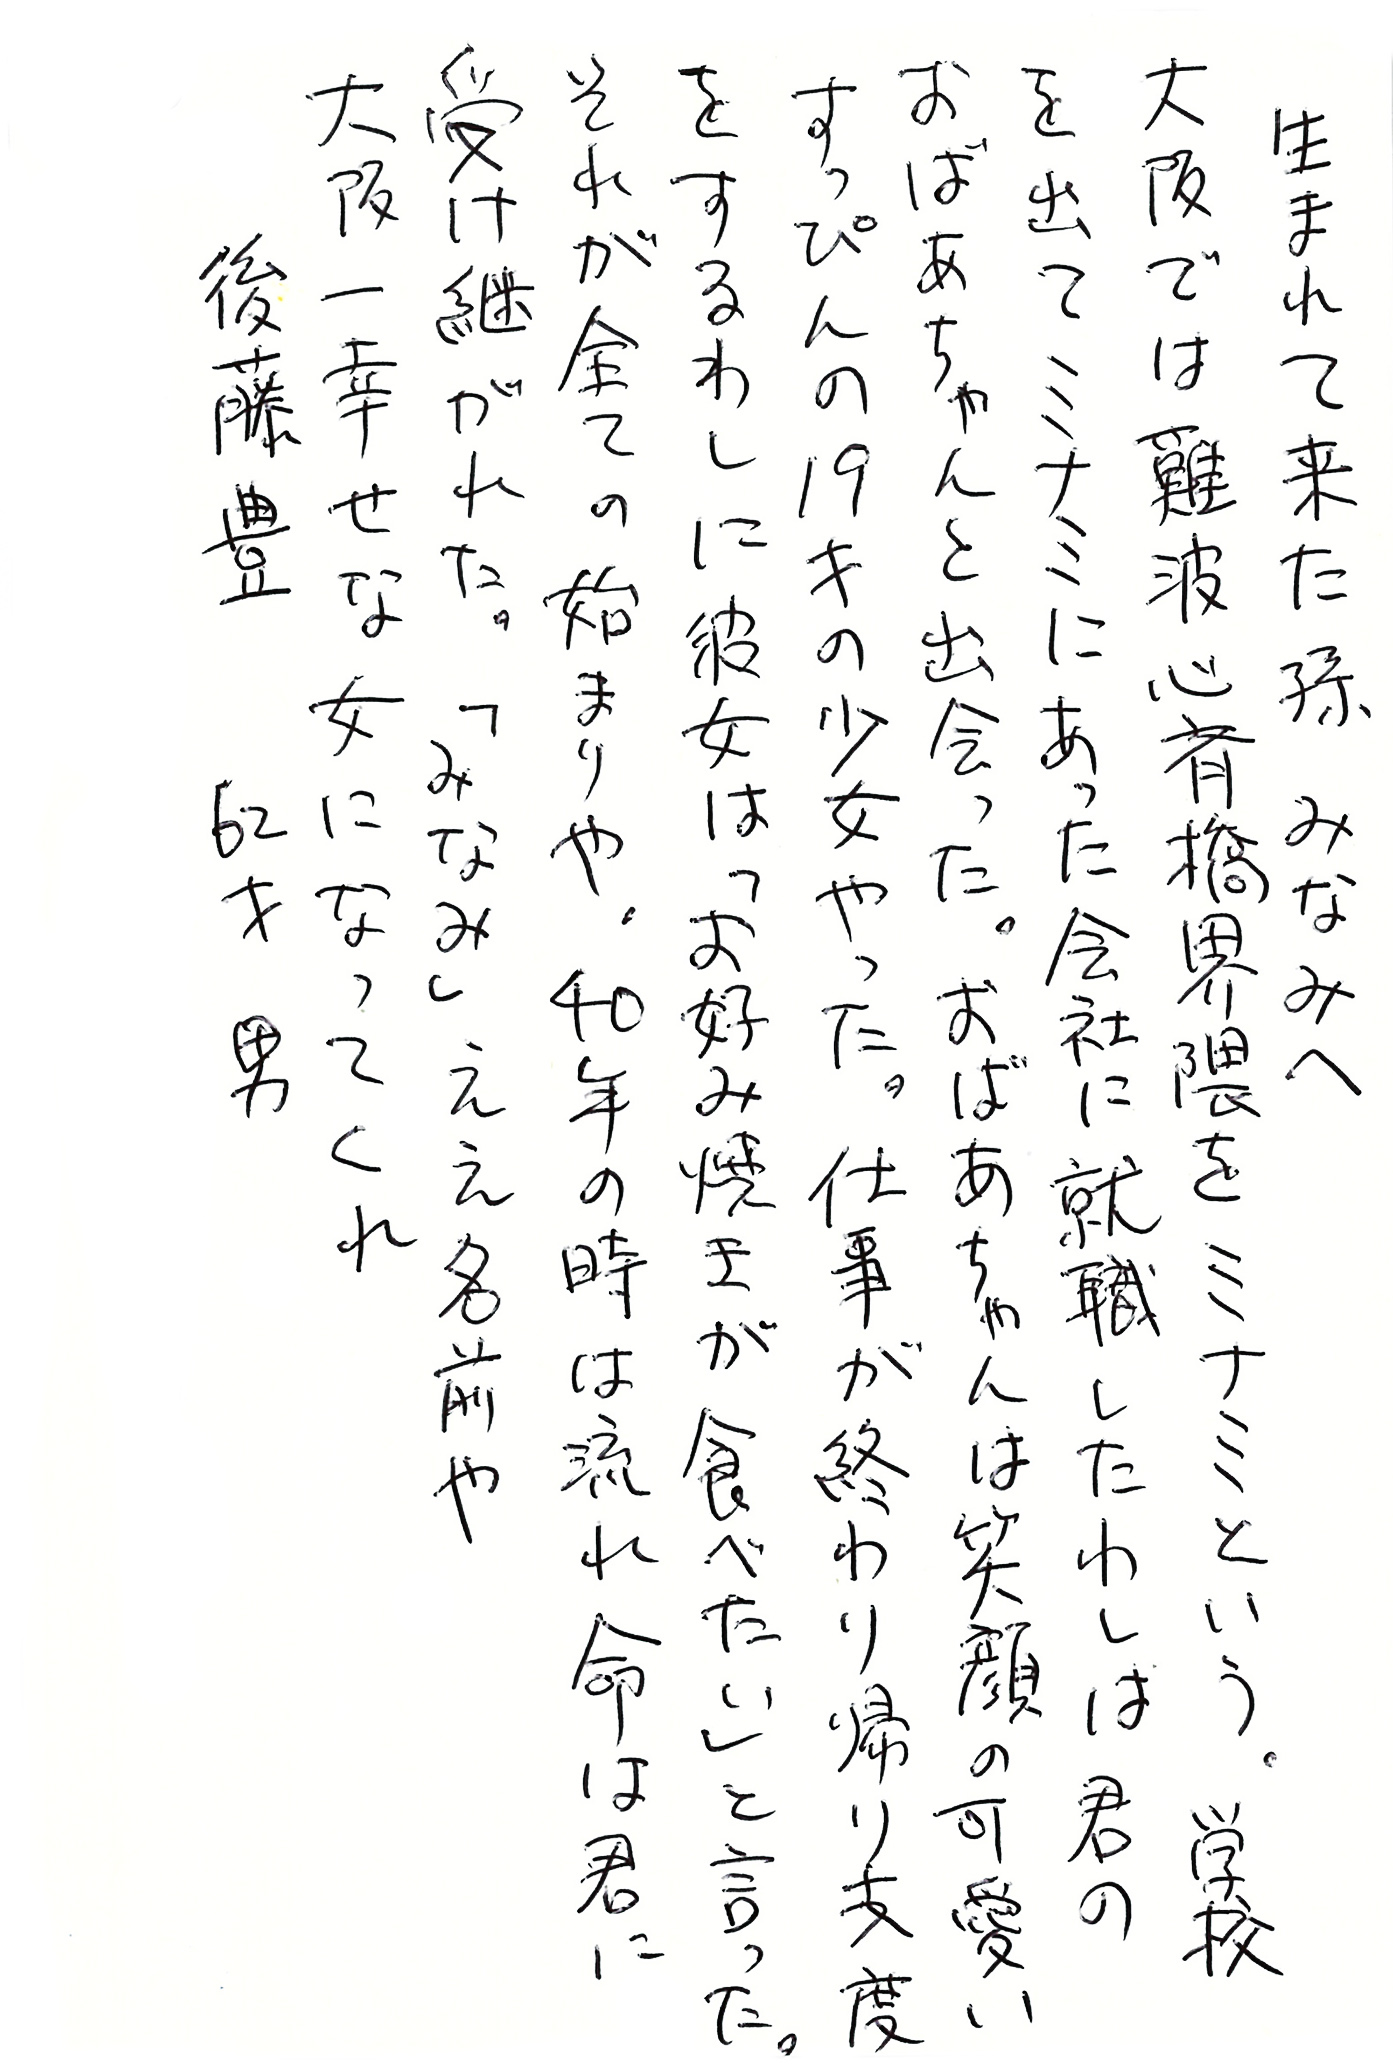 生まれて来た孫 みなみへ
大阪では難波心斉橋界隈をミナミという。学校
を出てミナミにあった会社に就職したわしは君の
おばあちゃんと出会った。おばあちゃんは笑顔の可愛い
すっぴんの19才の少女やった。仕事が終わり帰り支度
をするわしに彼女は「お好み焼きが食べたい」と言った。
それが全ての始まりや。40年の時は流れ命は君に
受け継がれた。「みなみ」ええ名前や
大阪一幸せな女になってくれ
後藤豊 62才 男